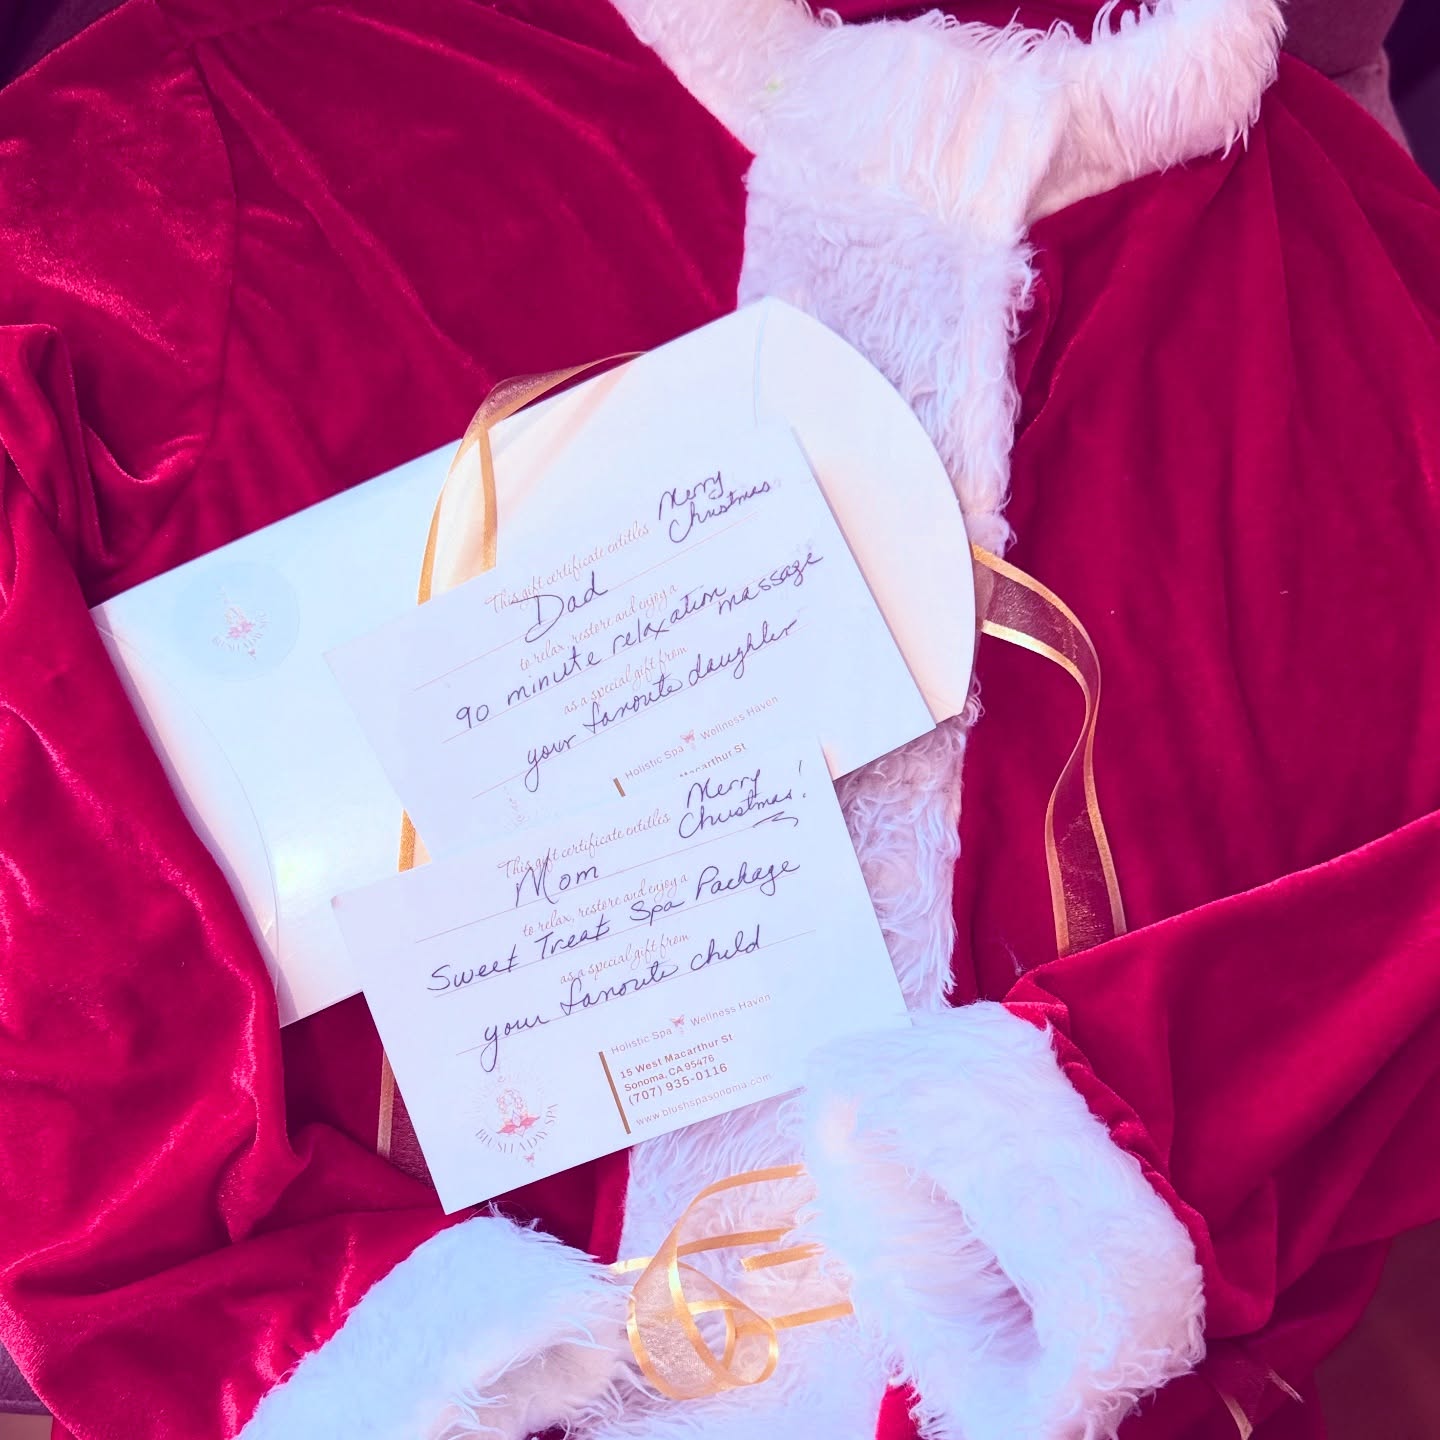 Merry
Christmas
This gift certificate entitles
Dad
to relax, restore and enjoy a
90 minute relaxation massage
as a special gift from
your favorite daughter
Holistic Spa Wellness Haven
Macarthur St
Merry
Christmas!
This gift certificate entitles
Mom
to relax, restore and enjoy a
Sweet Treat Spa Package
as a special gift from
your favorite child
Holistic Spa Wellness Haven
15 West Macarthur St
Sonoma, CA 95476
(707) 935-0116
www.blushspasonoma.com
BLUSH A DAY SPA